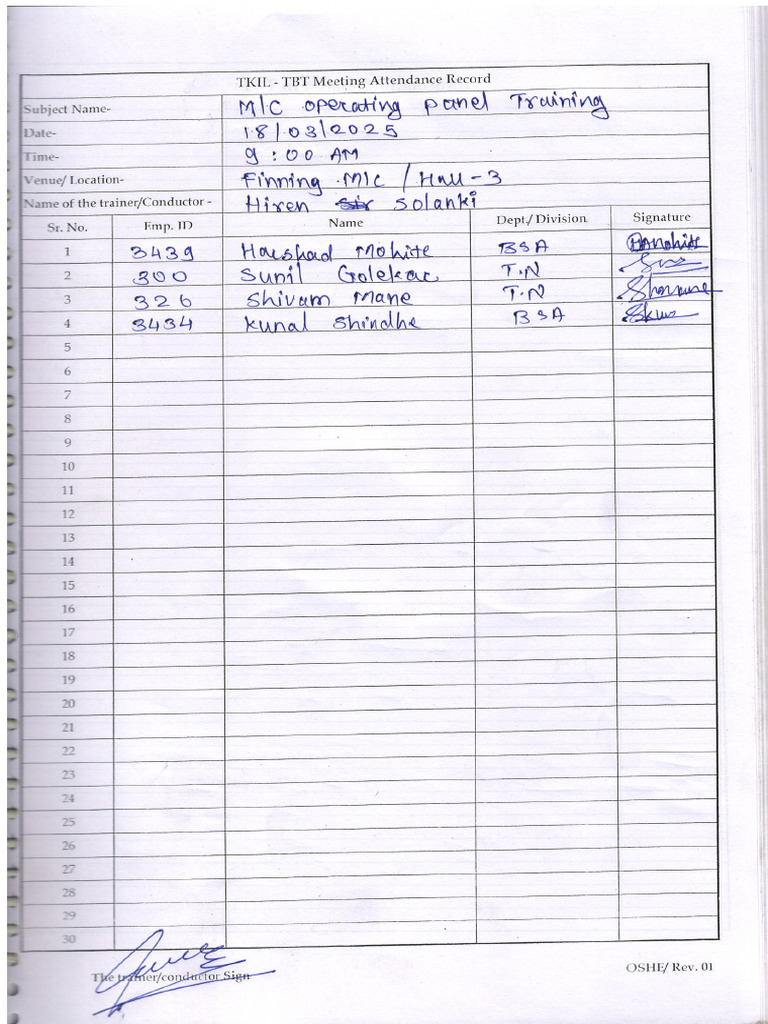 TKIL - TBT Meeting Attendance Record
Subject Name- M/C operating panel Training
Date- 18/03/2025
Time- 9:00 AM
Venue/ Location- Finning M/c / Hall-3
Name of the trainer/Conductor - Hiren Sir Solanki
Sr. No. Emp. ID Name Dept./ Division Signature
1 3439 Harshad Mohite BSA
2 300 Sunil Golekar T.N
3 326 Shivam Mane T.N
4 3434 Kunal Shindhe BSA
5
6
7
8
9
10
11
12
13
14
15
16
17
18
19
20
21
22
23
24
25
26
27
28
29
30
The trainer/conductor Sign
OSHE/ Rev. 01